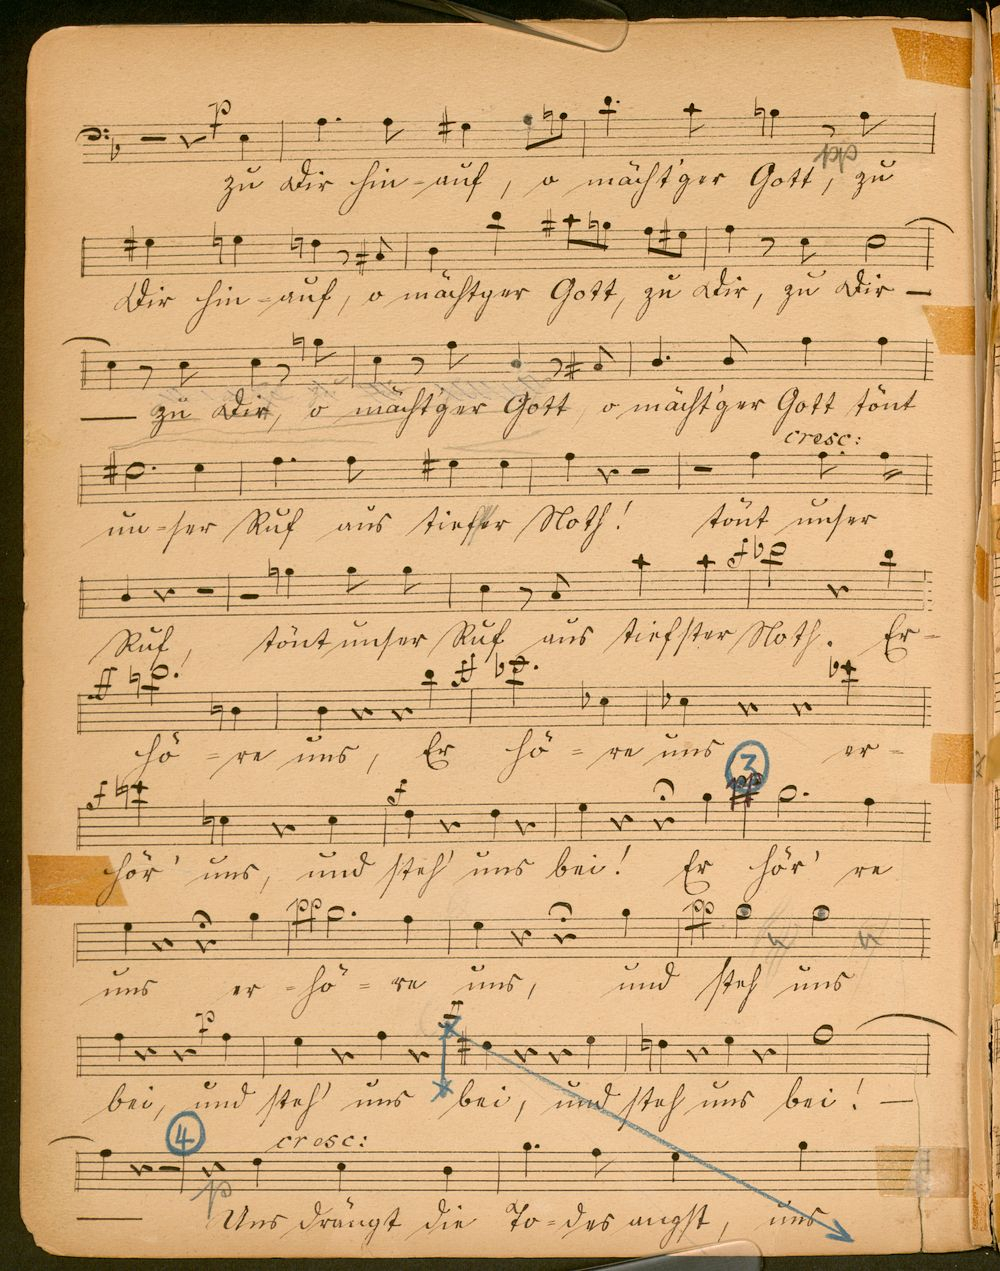 p
pp
zu Dir hin-auf, o mächt'ger Gott, zu
Dir hin-auf, o mächtger Gott, zu Dir, zu Dir —
— zu Dir, o mächt'ger Gott o mächt'ger Gott tönt
cresc:
un-ser Ruf aus tiefster Noth! tönt unser
f
Ruf, tönt unser Ruf aus tiefster Noth. Er-
ff ff
hö-re uns, Er hö-re uns er-
f f 3 pp
hör' uns, und steh' uns bei! Er hör're
pp pp
uns er-hö-re uns, und steh uns
p
bei, und steh' uns bei, und steh uns bei! —
4 cresc:
p
— Uns drängt die To-des angst, uns